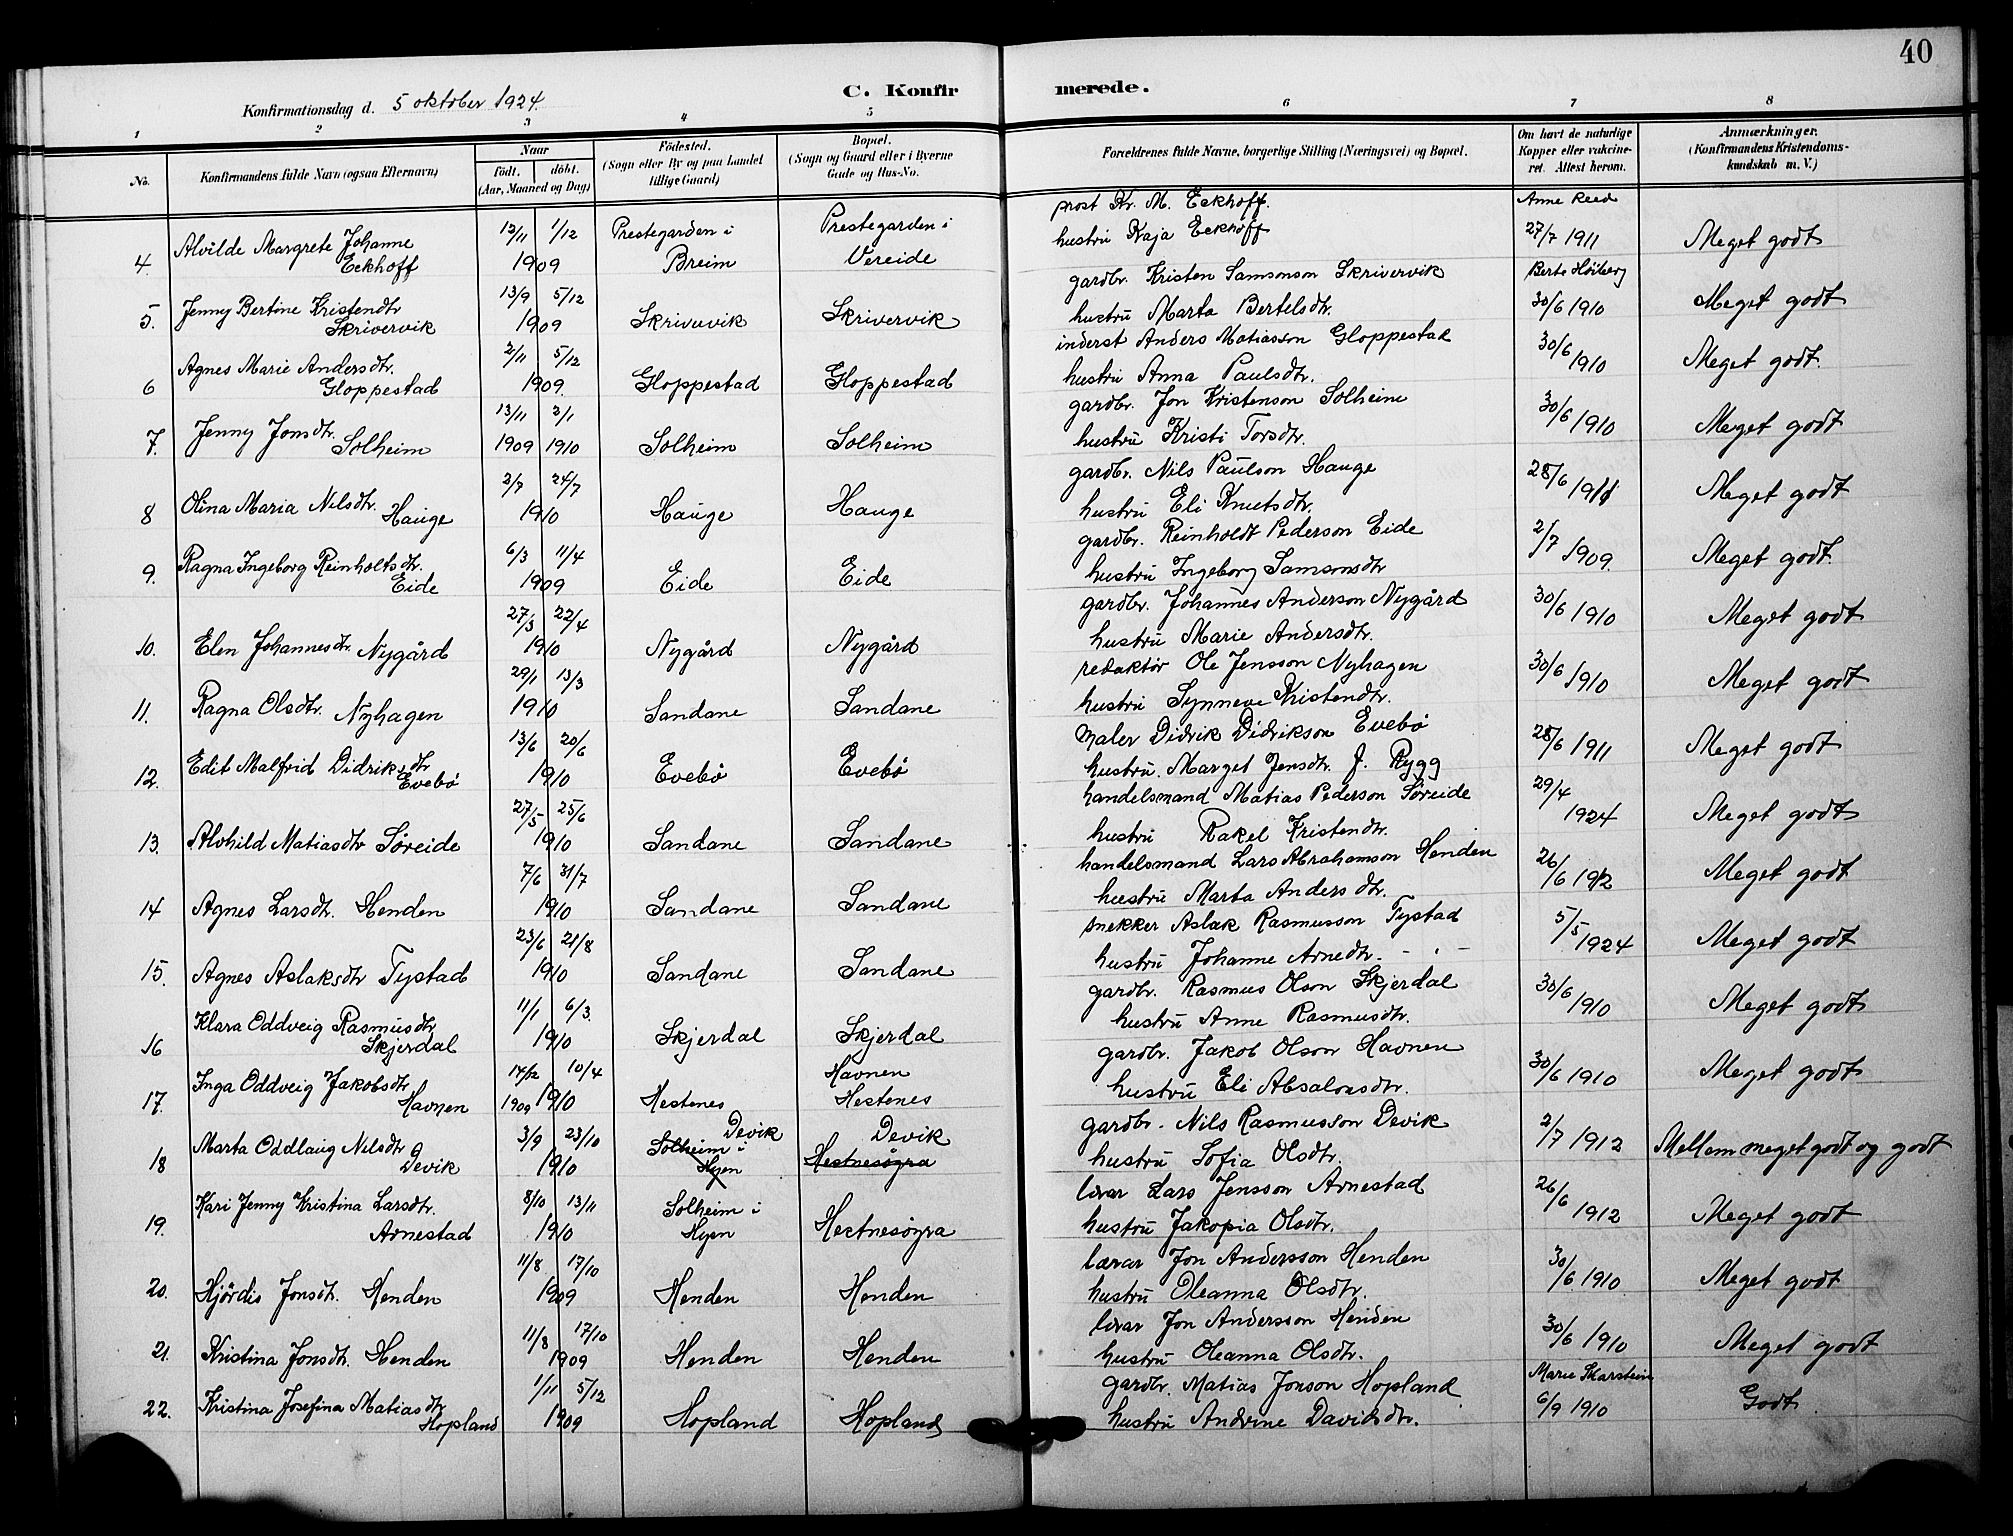 40
Konfirmationsdag d. 5 oktober 1924.
C. Konfirmerede.
1 2 3 4 5 6 7 8
No. Konfirmandens fulde Navn (ogsaa Efternavn)
Naar
födt. döbt.
(Aar, Maaned og Dag)
Födested.
(Sogn eller By og paa Landet
tillige Gaard)
Bopæl.
(Sogn og Gaard eller i Byerne
Gade og Hus-No.
Forældrenes fulde Navne, borgerlige Stilling (Næringsvei) og Bopæl.
Om havt de naturlige
Kopper eller vakcine-
ret. Attest herom.
Anmærkninger.
(Konfirmandens Kristendoms-
kundskab m. V.)
prost Kr. M. Eckhoff. Anne Reed
Alvilde Margrete Johanne 12/11 1/12 Prestegarden i Prestegarden i hustru Kaja Eckhoff 27/7 1911 Meget godt
4. Eckhoff 1909 Breim Vereide
gardbr. Kristen Samsonson Skrivervik Berte Höiberg
Jenny Bertine Kristendtr 13/9 5/12
5. Skrivervik 1909 Skrivervik Skrivervik hustru Marta Bertelsdtr. 30/6 1910 Meget godt
inderst Anders Matiasson Gloppestad
Agnes Marie Andersdtr. 2/11 5/12 30/6 1910 Meget godt.
6 Gloppestad 1909. Gloppestad Gloppestad hustru Anna Paulsdtr.
gardbr. Jon Kristenson Solheim
Jenny Jonsdtr. 13/11 2/1 30/6 1910 Meget godt
7. Solheim 1909 1910 Solheim Solheim hustru Kristi Torsdtr.
gardbr. Nils Paulson Hauge
Olina Maria Nilsdtr. 2/7 24/7 28/6 1911 Meget godt
8 Hauge 1910 Hauge Hauge hustru Eli Knutsdtr.
gardbr. Reinholdt Pederson Eide
Ragna Ingeborg Reinholtsdtr. 6/3 11/4 2/7 1909. Meget godt.
9. Eide 1909 Eide Eide hustru Ingeborg Samsonsdtr
gardbr. Johannes Anderson Nygård
27/3 22/4 30/6 1910 Meget godt
10. Elen Johannesdtr. Nygård 1910 Nygård Nygård hustru Marie Andersdtr.
redaktör Ole Jensson Nyhagen
29/1 13/3 30/6 1910 Meget godt
11. Ragna Olsdtr. Nyhagen 1910 Sandane Sandane hustru Synneve Kristendtr.
maler Didrik Didrikson Evebö
Edit Malfrid Didriksdtr 13/6 20/6 28/6 1911 Meget godt
12. Evebö 1910 Evebö Evebö hustru. Marget Jensdtr. f. Rygg
handelsmand Matias Pederson Söreide
27/5 25/6 29/4 1924 Meget godt
13. Alvhild Matiasdtr Söreide 1910 Sandane Sandane hustru Rakel Kristendtr.
handelsmand Lars Abrahamson Henden
7/6 31/7 26/6 1912 Meget godt
14 Agnes Larsdtr. Henden 1910 Sandane Sandane hustru Marta Andersdtr.
snekker Aslak Rasmusson Tystad
23/6 21/8 5/5 1924 Meget godt
15. Agnes Aslaksdtr Tystad 1910 Sandane Sandane hustru Johanne Arnedtr. - " -
gardbr. Rasmus Olson Skjerdal
Klara Oddveig Rasmusdtr 11/1 6/3. 30/6 1910 Meget godt
16 Skjerdal 1910 Skjerdal Skjerdal hustru Anne Rasmusdtr.
gardbr. Jakob Olson Havnen
Inga Oddveig Jakobsdtr 14/12 10/4 Havnen 30/6 1910 Meget godt
17. Havnen 1909 1910 Hestenes Hestenes hustru Eli Absalonsdtr.
gardbr. Nils Rasmusson Devik
Marta Oddlaug Nilsdtr 3/9 23/10 Devik Devik 2/7 1912 Mellem meget godt og godt
18 Devik 1910 Solheim i Hyen Hestnesöyra hustru Sofia Olsdtr.
lærar Lars Jensson Arnestad
Kari Jenny Kristina Larsdtr. 8/10 13/11 Solheim i 26/6 1912 Meget godt
19. Arnestad 1910 Hyen Hestnesöyra hustru Jakopia Olsdtr.
lærar Jon Andersson Henden
11/8 17/10 30/6 1910 Meget godt
20. Hjördis Jonsdtr. Henden 1909 Henden Henden hustru Oleanna Olsdtr.
lærar Jon Andersson Henden
11/8 17/10 30/6 1910 Meget godt
21. Kristina Jonsdtr. Henden 1909 Henden Henden hustru Oleanna Olsdtr.
gardbr. Matias Jonson Hopland Marie Karstein
Kristina Josefina Matiasdtr 1/11 5/12 6/9 1910 Godt
22. Hopland 1909 Hopland Hopland hustru Andrine Davidsdtr.